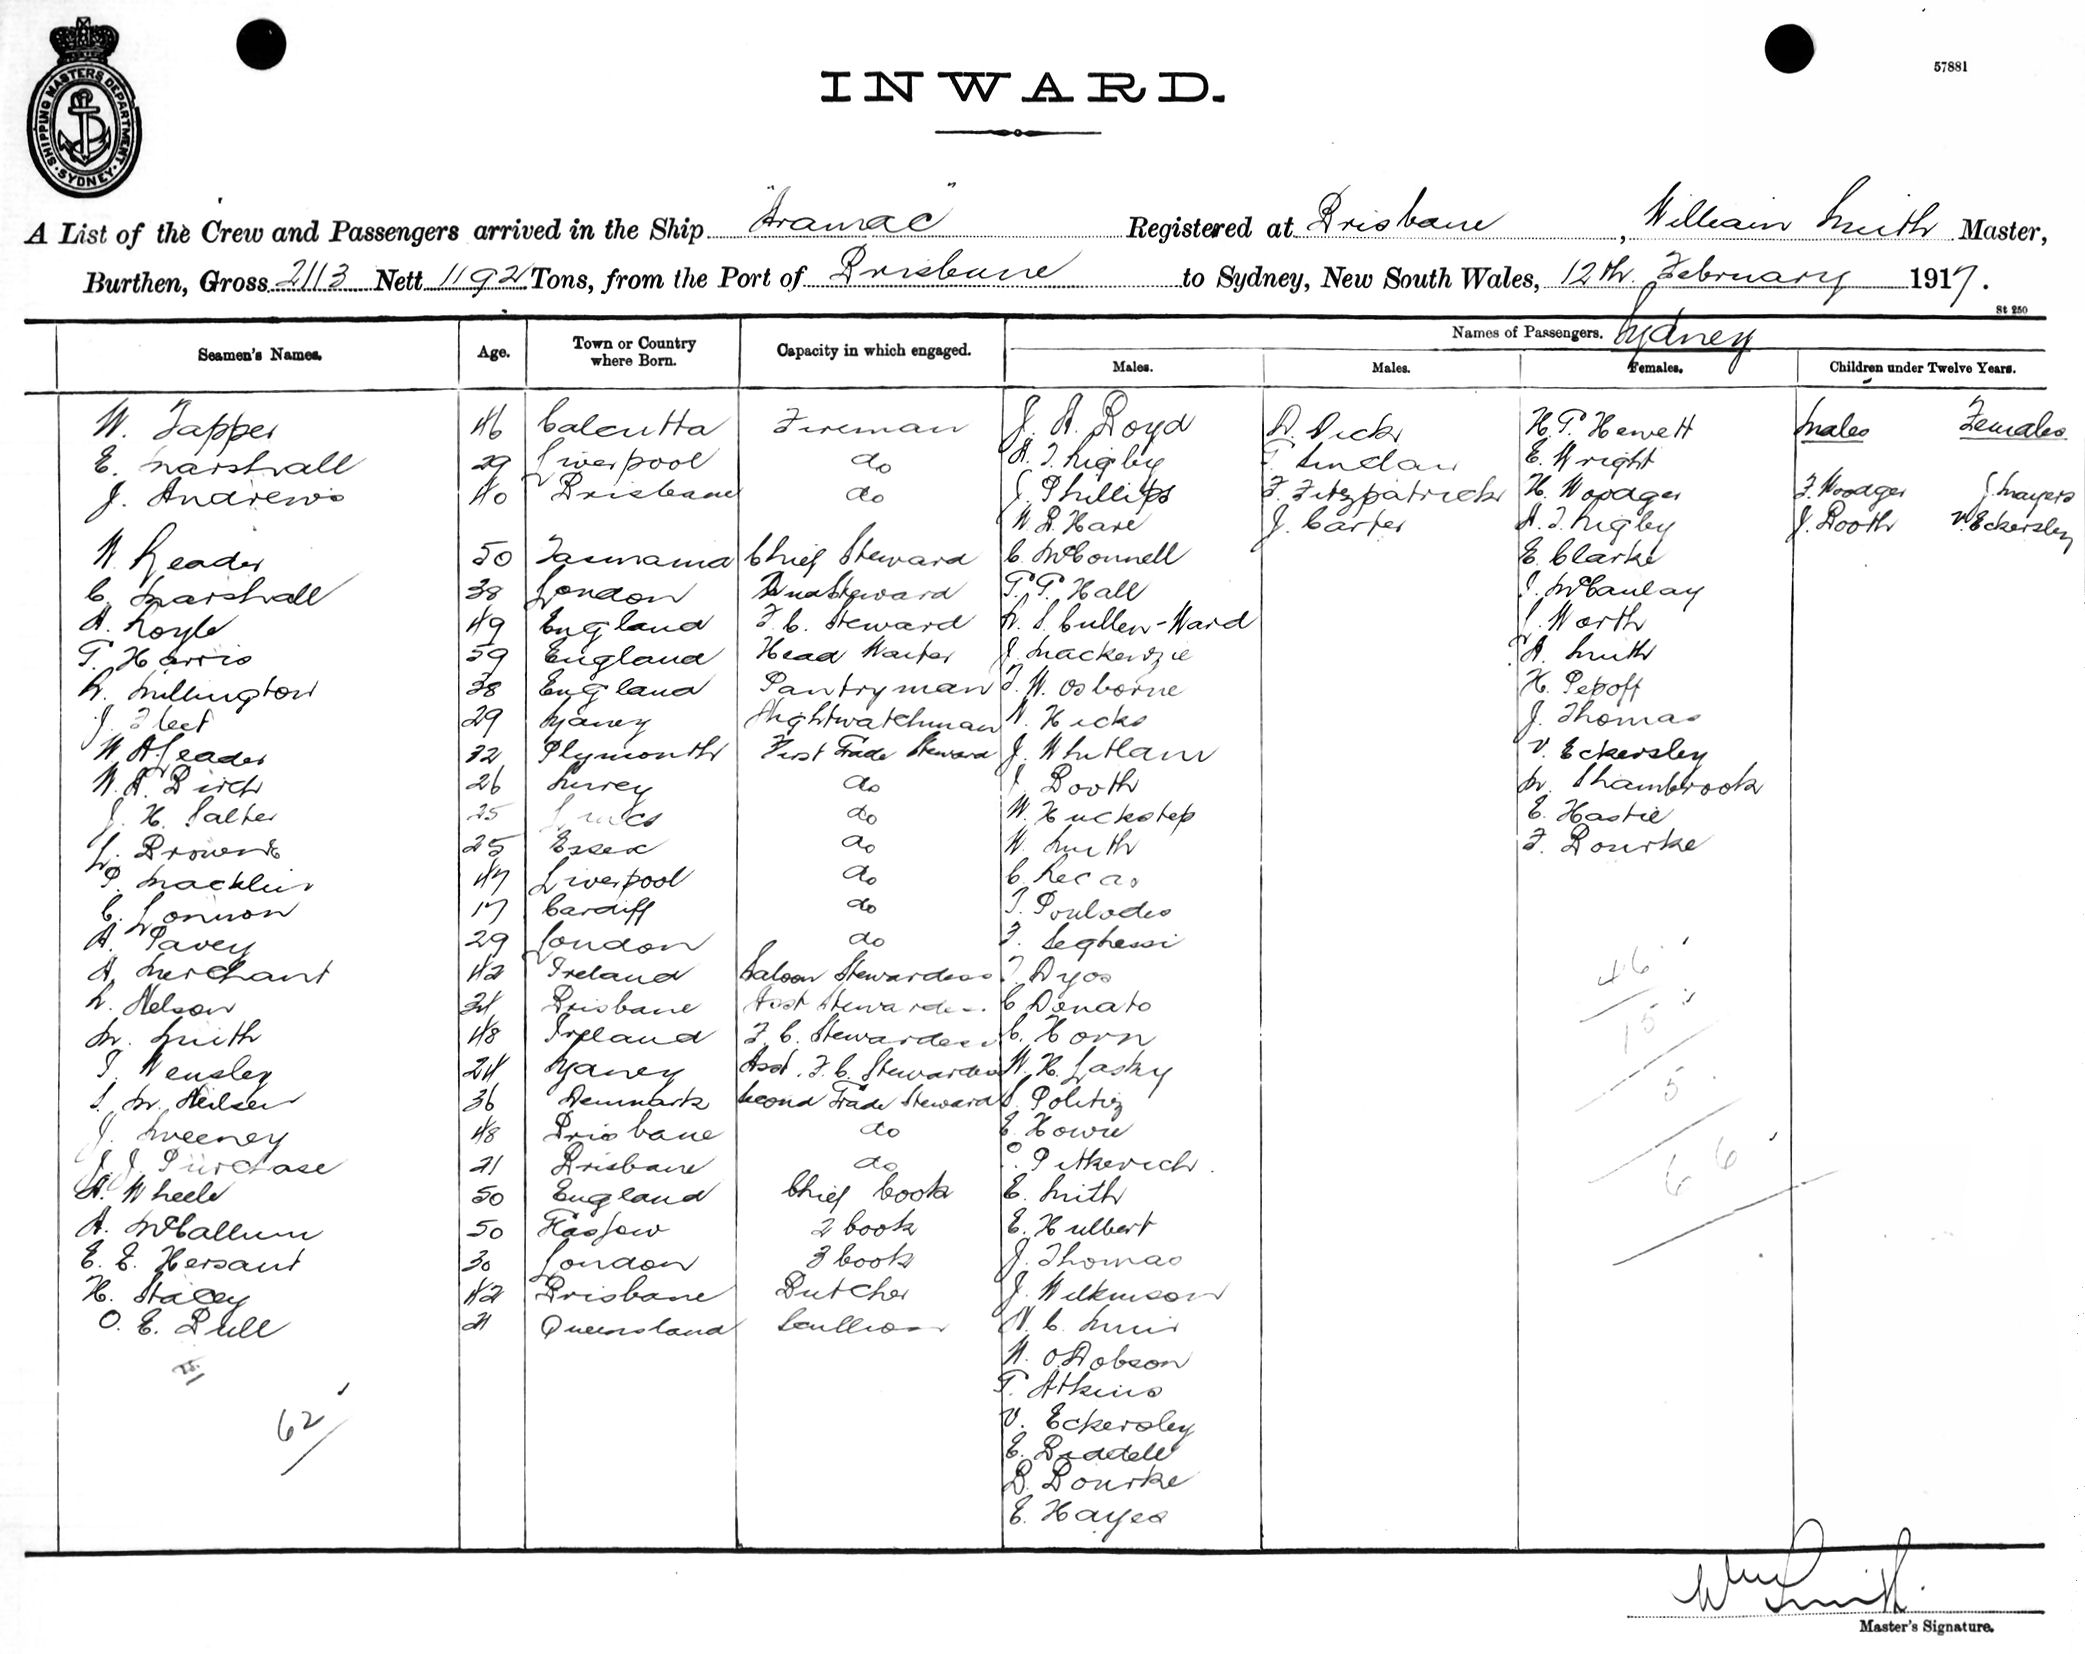 SHIPPING MASTERS DEPARTMENT SYDNEY
57881
INWARD.
A List of the Crew and Passengers arrived in the Ship "Aramac" Registered at Brisbane, William Smith Master,
Burthen, Gross 2113 Nett 1192 Tons, from the Port of Brisbane to Sydney, New South Wales, 12th February 1917.
St 250
Seamen's Names. Age. Town or Country where Born. Capacity in which engaged. Names of Passengers. Sydney
Males. Males. Females. Children under Twelve Years.
W. Tapper 46 Calcutta Fireman J. A. Boyd D. Dick H. T. Hewett Males Females
E. Marshall 29 Liverpool do A. J. Rigby T. Sinclair E. Wright
J. Andrews 40 Brisbane do J. Phillips F. Fitzpatrick H. Woodger F. Woodger J. Mayers
W. B. Hare J. Carter A. J. Rigby J. Booth V. Eckersley
W. Reader 50 Tasmania Chief Steward C. McConnell E. Clarke
C. Marshall 38 London 2nd Steward T. T. Hall McCaulay
A. Royle 49 England F. C. Steward S. Cullen-Ward Worth
T. Harris 39 England Head Waiter J. Mackenzie A. Smith
L. Millington 38 England Pantryman F. W. Osborne H. Pepoff
J. Fleet 29 Sydney Nightwatchman N. Hicks J. Thomas
W. A. Leader 32 Plymouth First Trade Steward J. Whitlam V. Eckersley
W. A. Birch 26 Surrey do J. Booth M. Shambrook
J. H. Salter 25 do W. Huckstep E. Hastie
L. Browne 25 Essex do W. Smith F. Bourke
P. Macklin 47 Liverpool do C. Recas
C. Lonnon 17 Cardiff do Poulodes
A. Pavey 29 London do F. Seghessi
A. Merchant 42 Ireland Saloon Stewardess Dyos
L. Nelson 34 Brisbane Asst Stewardess C. Donato
M. Smith 48 Ireland F. C. Stewardess C. Horn
Wensley 24 Sydney Asst. F. C. Stewardess W. H. Lasky
S. M. Neilsen 36 Denmark Second Trade Steward S. Politiz
J. Sweeney 48 Brisbane do E. Howie
J. J. Purchase 21 Brisbane do Pitkevich.
A. Wheele 50 England Chief Cook E. Smith
A. McCallum 50 Glasgow 2 Cook E. Hulbert
E. E. Hersant 30 London 3 Cook J. Thomas
H. Stacey 42 Brisbane Butcher J. Wilkinson
O. E. Bull 21 Queensland Scullion N. C. Muir
W. O. Dobson
T. Atkins
V. Eckersley
E. Biddell
B. Bourke
E. Hayes
46
15
5
66
62
Wm Smith
Master's Signature.